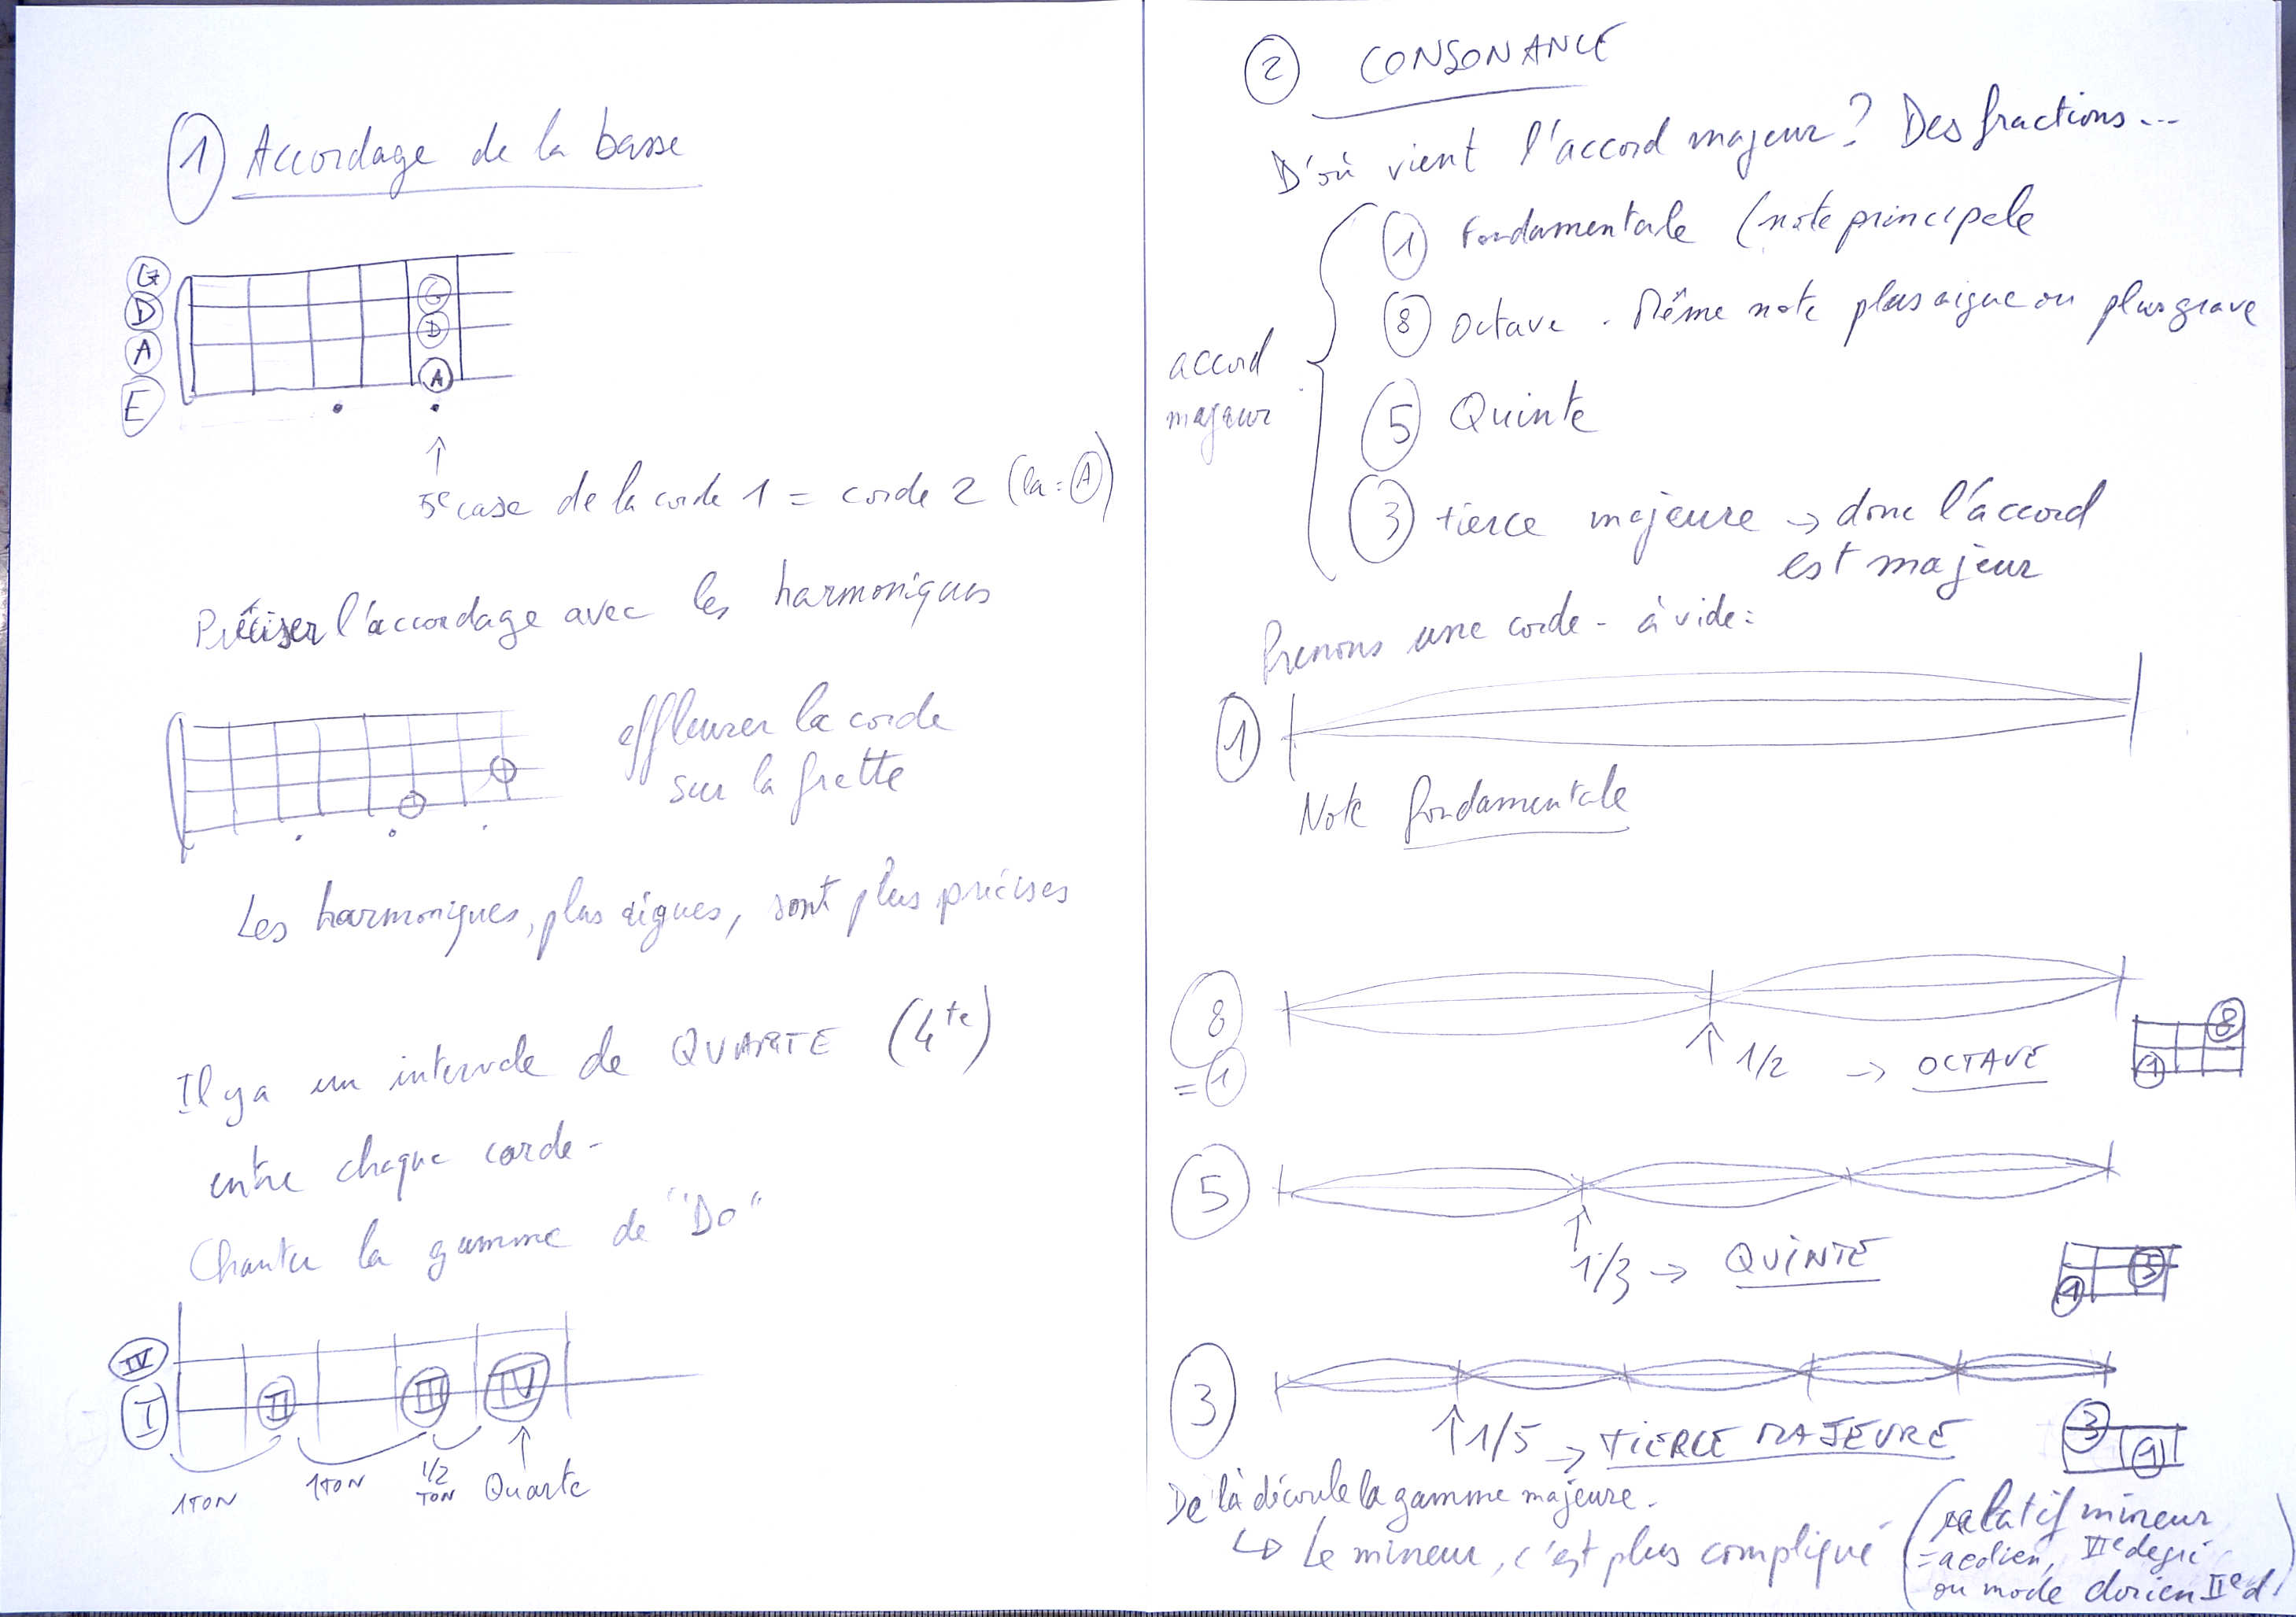 1 Accordage de la basse
G
D
A
E
G
D
A
5e case de la corde 1 = corde 2 (la = A)
Préciser l'accordage avec les harmoniques
effleurer la corde
sur la frette
Les harmoniques, plus aigues, sont plus précises
Il y a un intervale de QUARTE (4te)
entre chaque corde -
Chanter la gamme de "Do"
IV
I II III IV
1 TON 1 TON 1/2 TON Quarte
2 CONSONANCE
D'où vient l'accord majeur? Des fractions...
accord
majeur
1 Fondamentale (note principale
8 Octave. Même note plus aigue ou plus grave
5 Quinte
3 tierce majeure → donc l'accord
est majeur
Prenons une corde - à vide:
1
Note fondamentale
8
= 1
↑ 1/2 → OCTAVE
8
1
5
↑ 1/3 → QUINTE
5
1
3
↑ 1/5 → TIERCE MAJEURE
3
1
De là découle la gamme majeure.
↳ Le mineur, c'est plus compliqué
(relatif mineur
= aeolien, VIe degré
ou mode dorien IIe d.)